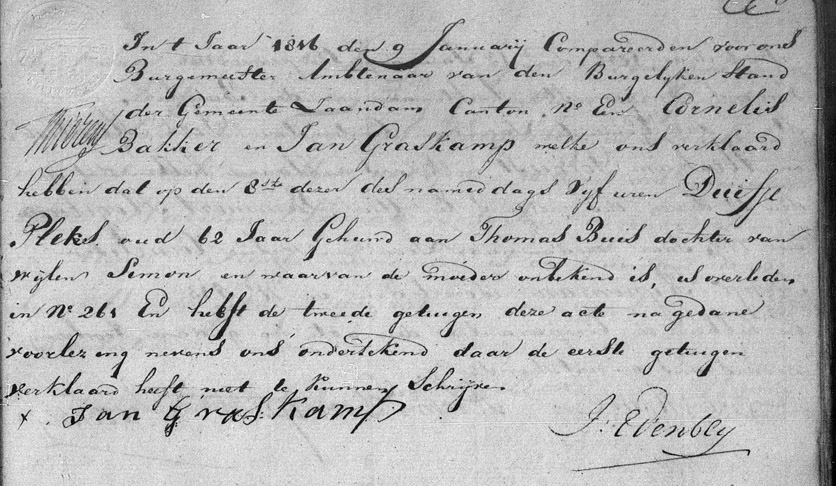 In t Jaar 1816 den 9 January Compareerden voor ons
Burgemeester Ambtenaar van den Burgelyken Stand
der Gemeente Zaandam Canton No Een Cornelis
Bakker en Jan Graskamp welke ons verklaard
hebben dat op den 8ste dezer des namiddags vyf uren Duifje
Pleks oud 62 Jaar Gehuwd aan Thomas Buis dochter van
wylen Simon en waarvan de moeder onbekend is, is overleden
in No 261 En heeft de tweede getuigen deze acte na gedane
voorlezing nevens ons ondertekend daar de eerste getuigen
verklaard heeft niet te kunnen Schryven
x Jan Graskamp
J. Evenbly